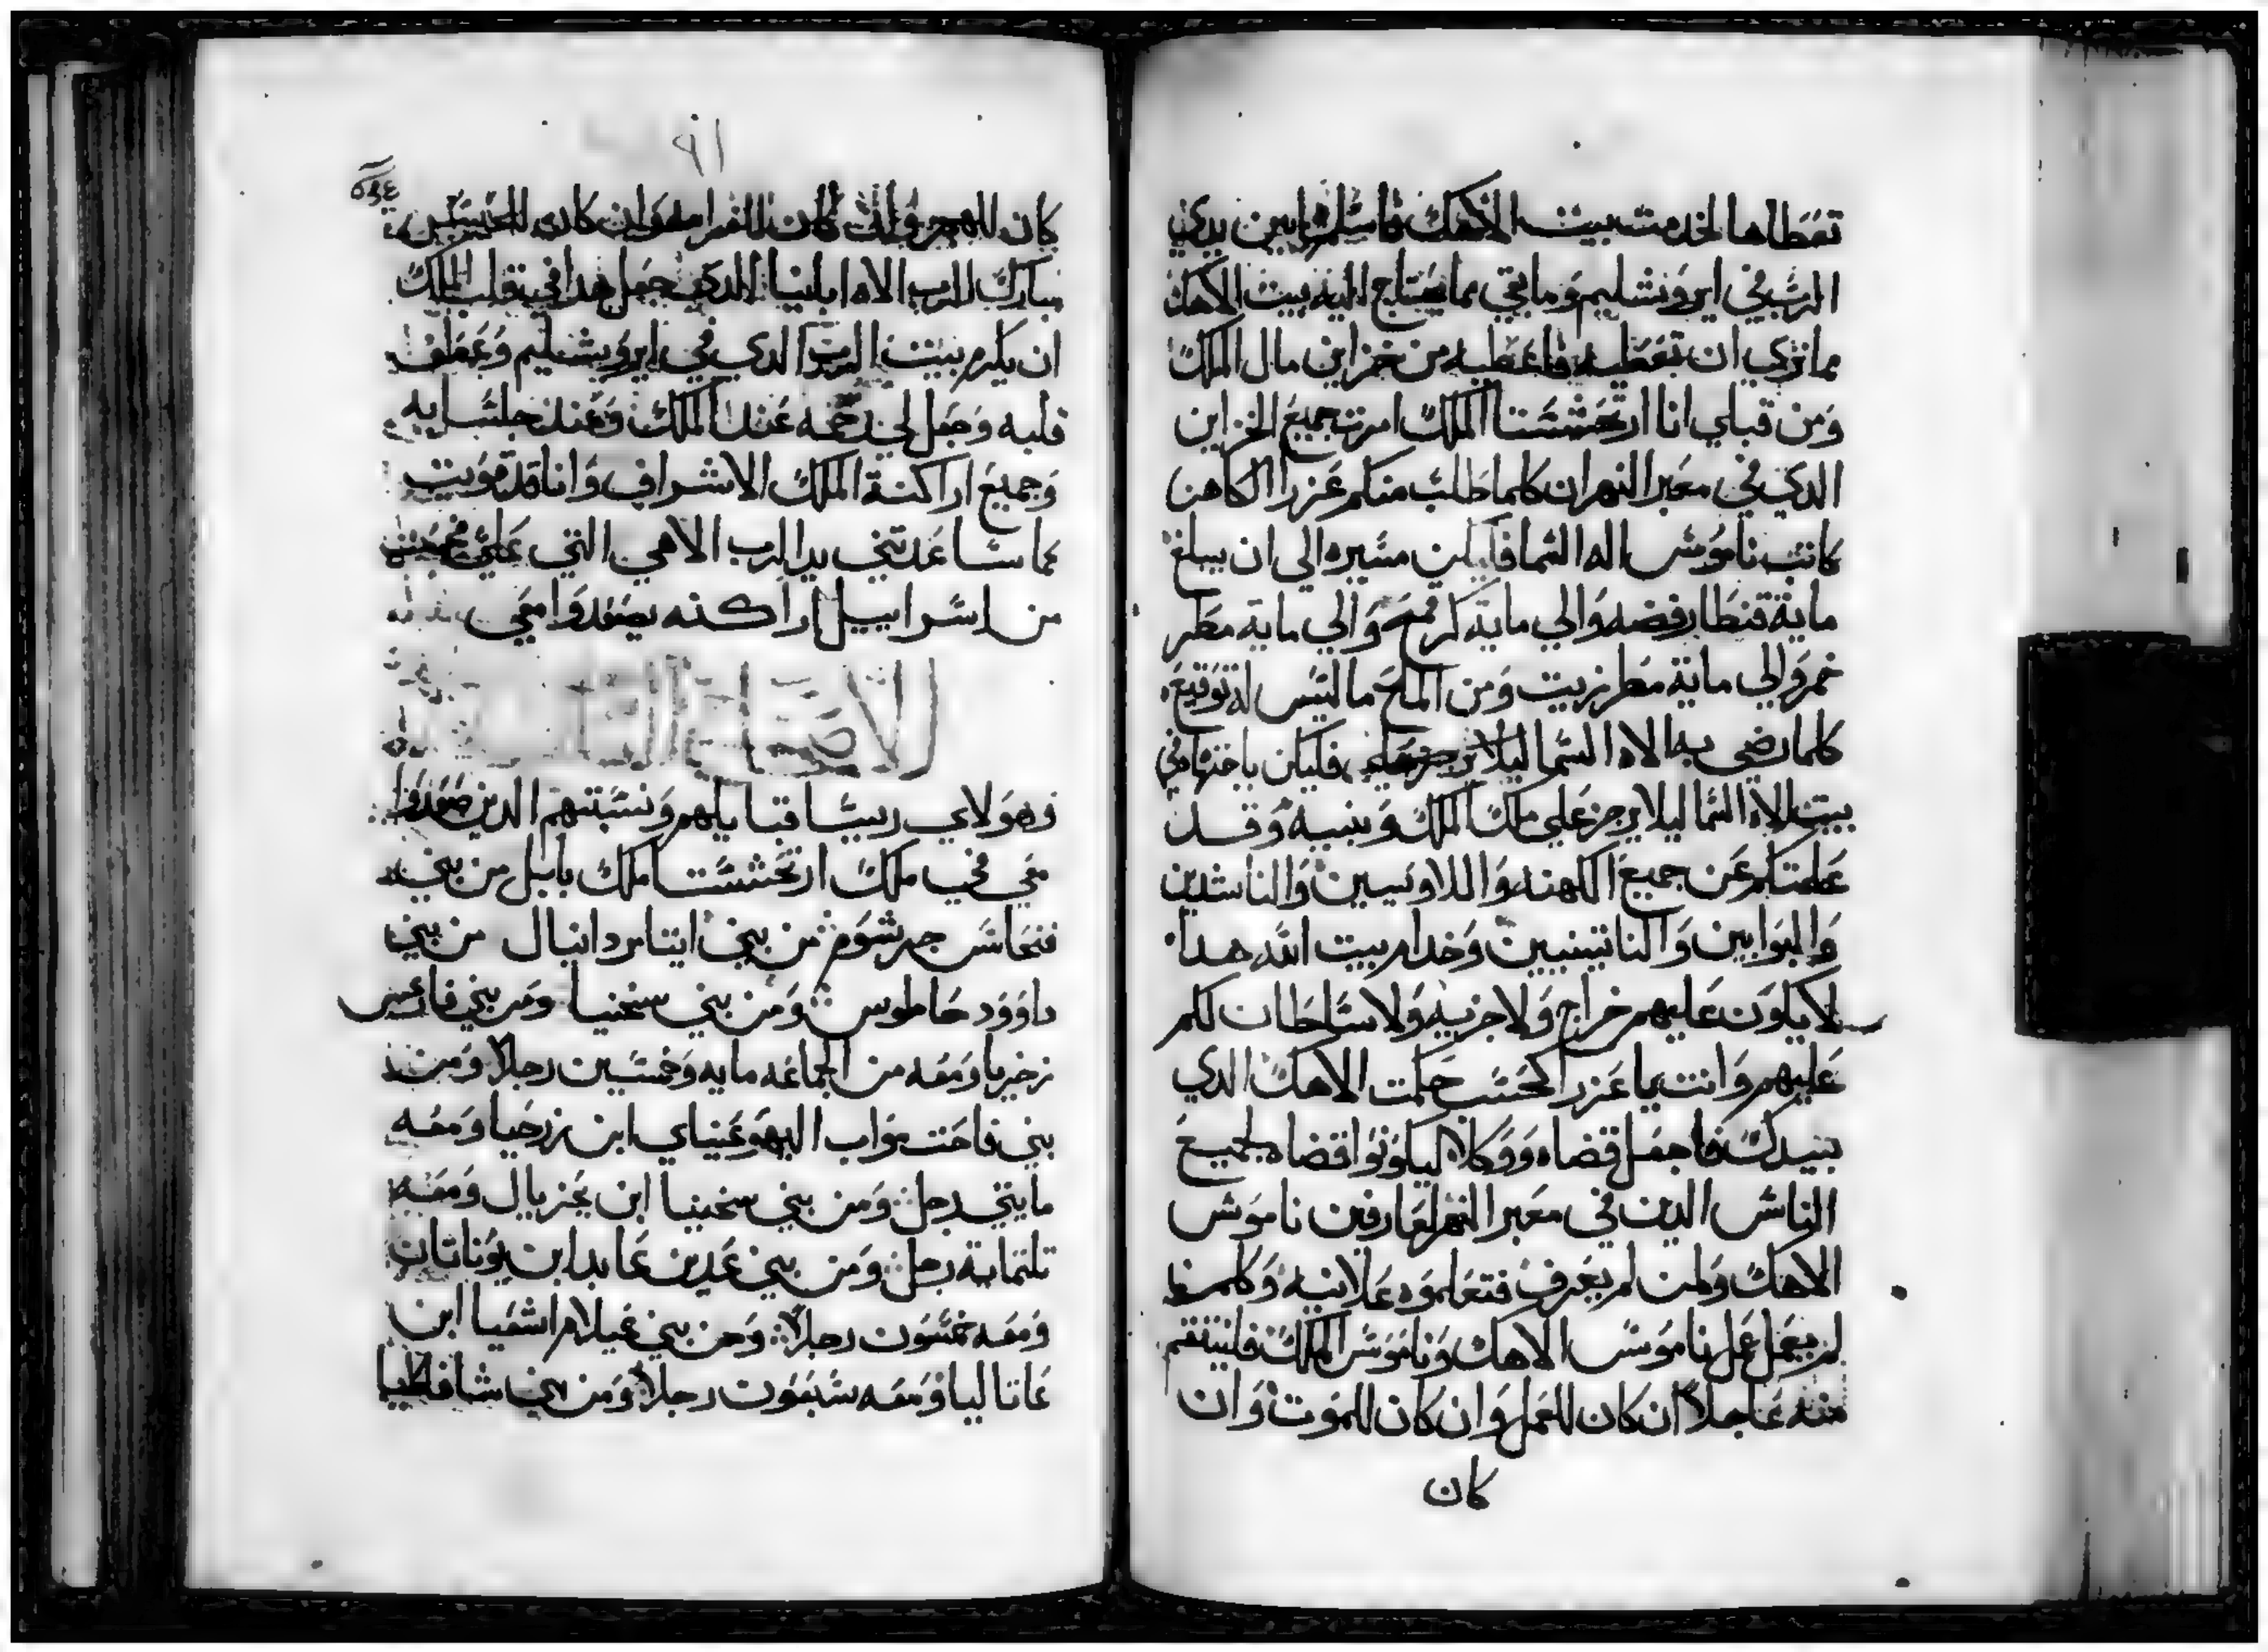 تعطاها لخدمت بيت الاهك فاسلمها بين يدي
الرب في ايروشليم وما بقي مما يحتاج اليه بيت الاهك
مما تري ان تعطيه فاعطيه من خزاين مال الملك
ومن قبلي انا ارتحششتا الملك امرت جميع الخزاين
الذي في معبر النهر ان كلما طلب منكم عزرا الكاهن
كاتب ناموس اله السما فليكن مسيره الي ان يبلغ
ماية قنطار فضه والي ماية كر قمح والي ماية مطر
خمر والي ماية مطر زيت ومن الملح ما ليس له توقيع
كلما رضي به الاه السما ليلا فليكن باختهاد في
بيت الاه السما ليلا يرجز علي ملك الملك وبنيه وقد
علمتكم عن جميع الكهنه واللاويين والناشدين
والبوابين والناتينيين وخدام بيت الله هدا
لا يكون عليهم خراج ولا جزيه ولا سلطان لكم
عليهم وانت يا عزرا كحسب حكمت الاهك الدي
بيدك فاجعل قضاه ووكلا ليكونوا قضاه لجميع
الناس الدين في معبر النهر لعارفين ناموس
الاهك ولمن لم يعرف فتعلموه علانيه وكلمن
لم يعمل عمل ناموس الاهك وناموس الملك فلينتقم
منه عاجلا ان كان للعمل وان كان للموت وان
كان
٩١
كان وان كان للغرامه وان كان للحبس
مبارك الرب الاه ابايينا الدي جعل هدا في قلب الملك
ان يكرم بيت الرب الدي في ايروشليم وعطف
قلبه وجعل لي رحمه عند الملك وعند جلسايه
وجميع اراكنة الملك الاشراف وانا قد قويت
مما ساعدتني يد الرب الاهي التي علي
من اسراييل اراكنه يصعدوا معي
الاصحاح
وهولاي ريسا قبايلهم ونسبتهم الدين صعدوا
معي في ملك ارتحششتا ملك بابل من بني
فنحاس جرشوم من بني ايتامر دانيال من بني
داوود حاطوس ومن بني سخنيا ومن بني فارعس
زخريا ومعه من الجماعه مايه وخمسين رجلا ومن
بني فاحت مواب اليهوعيناي ابن زرحيا ومعه
مايتي رجل ومن بني سخنيا ابن يحزيال ومعه
تلتماية رجل ومن بني عدين عابد ابن يوناتان
ومعه خمسون رجلا ومن بني عيلام اشعيا ابن
عاتاليا ومعه سبعون رجلا ومن بني شافطيا